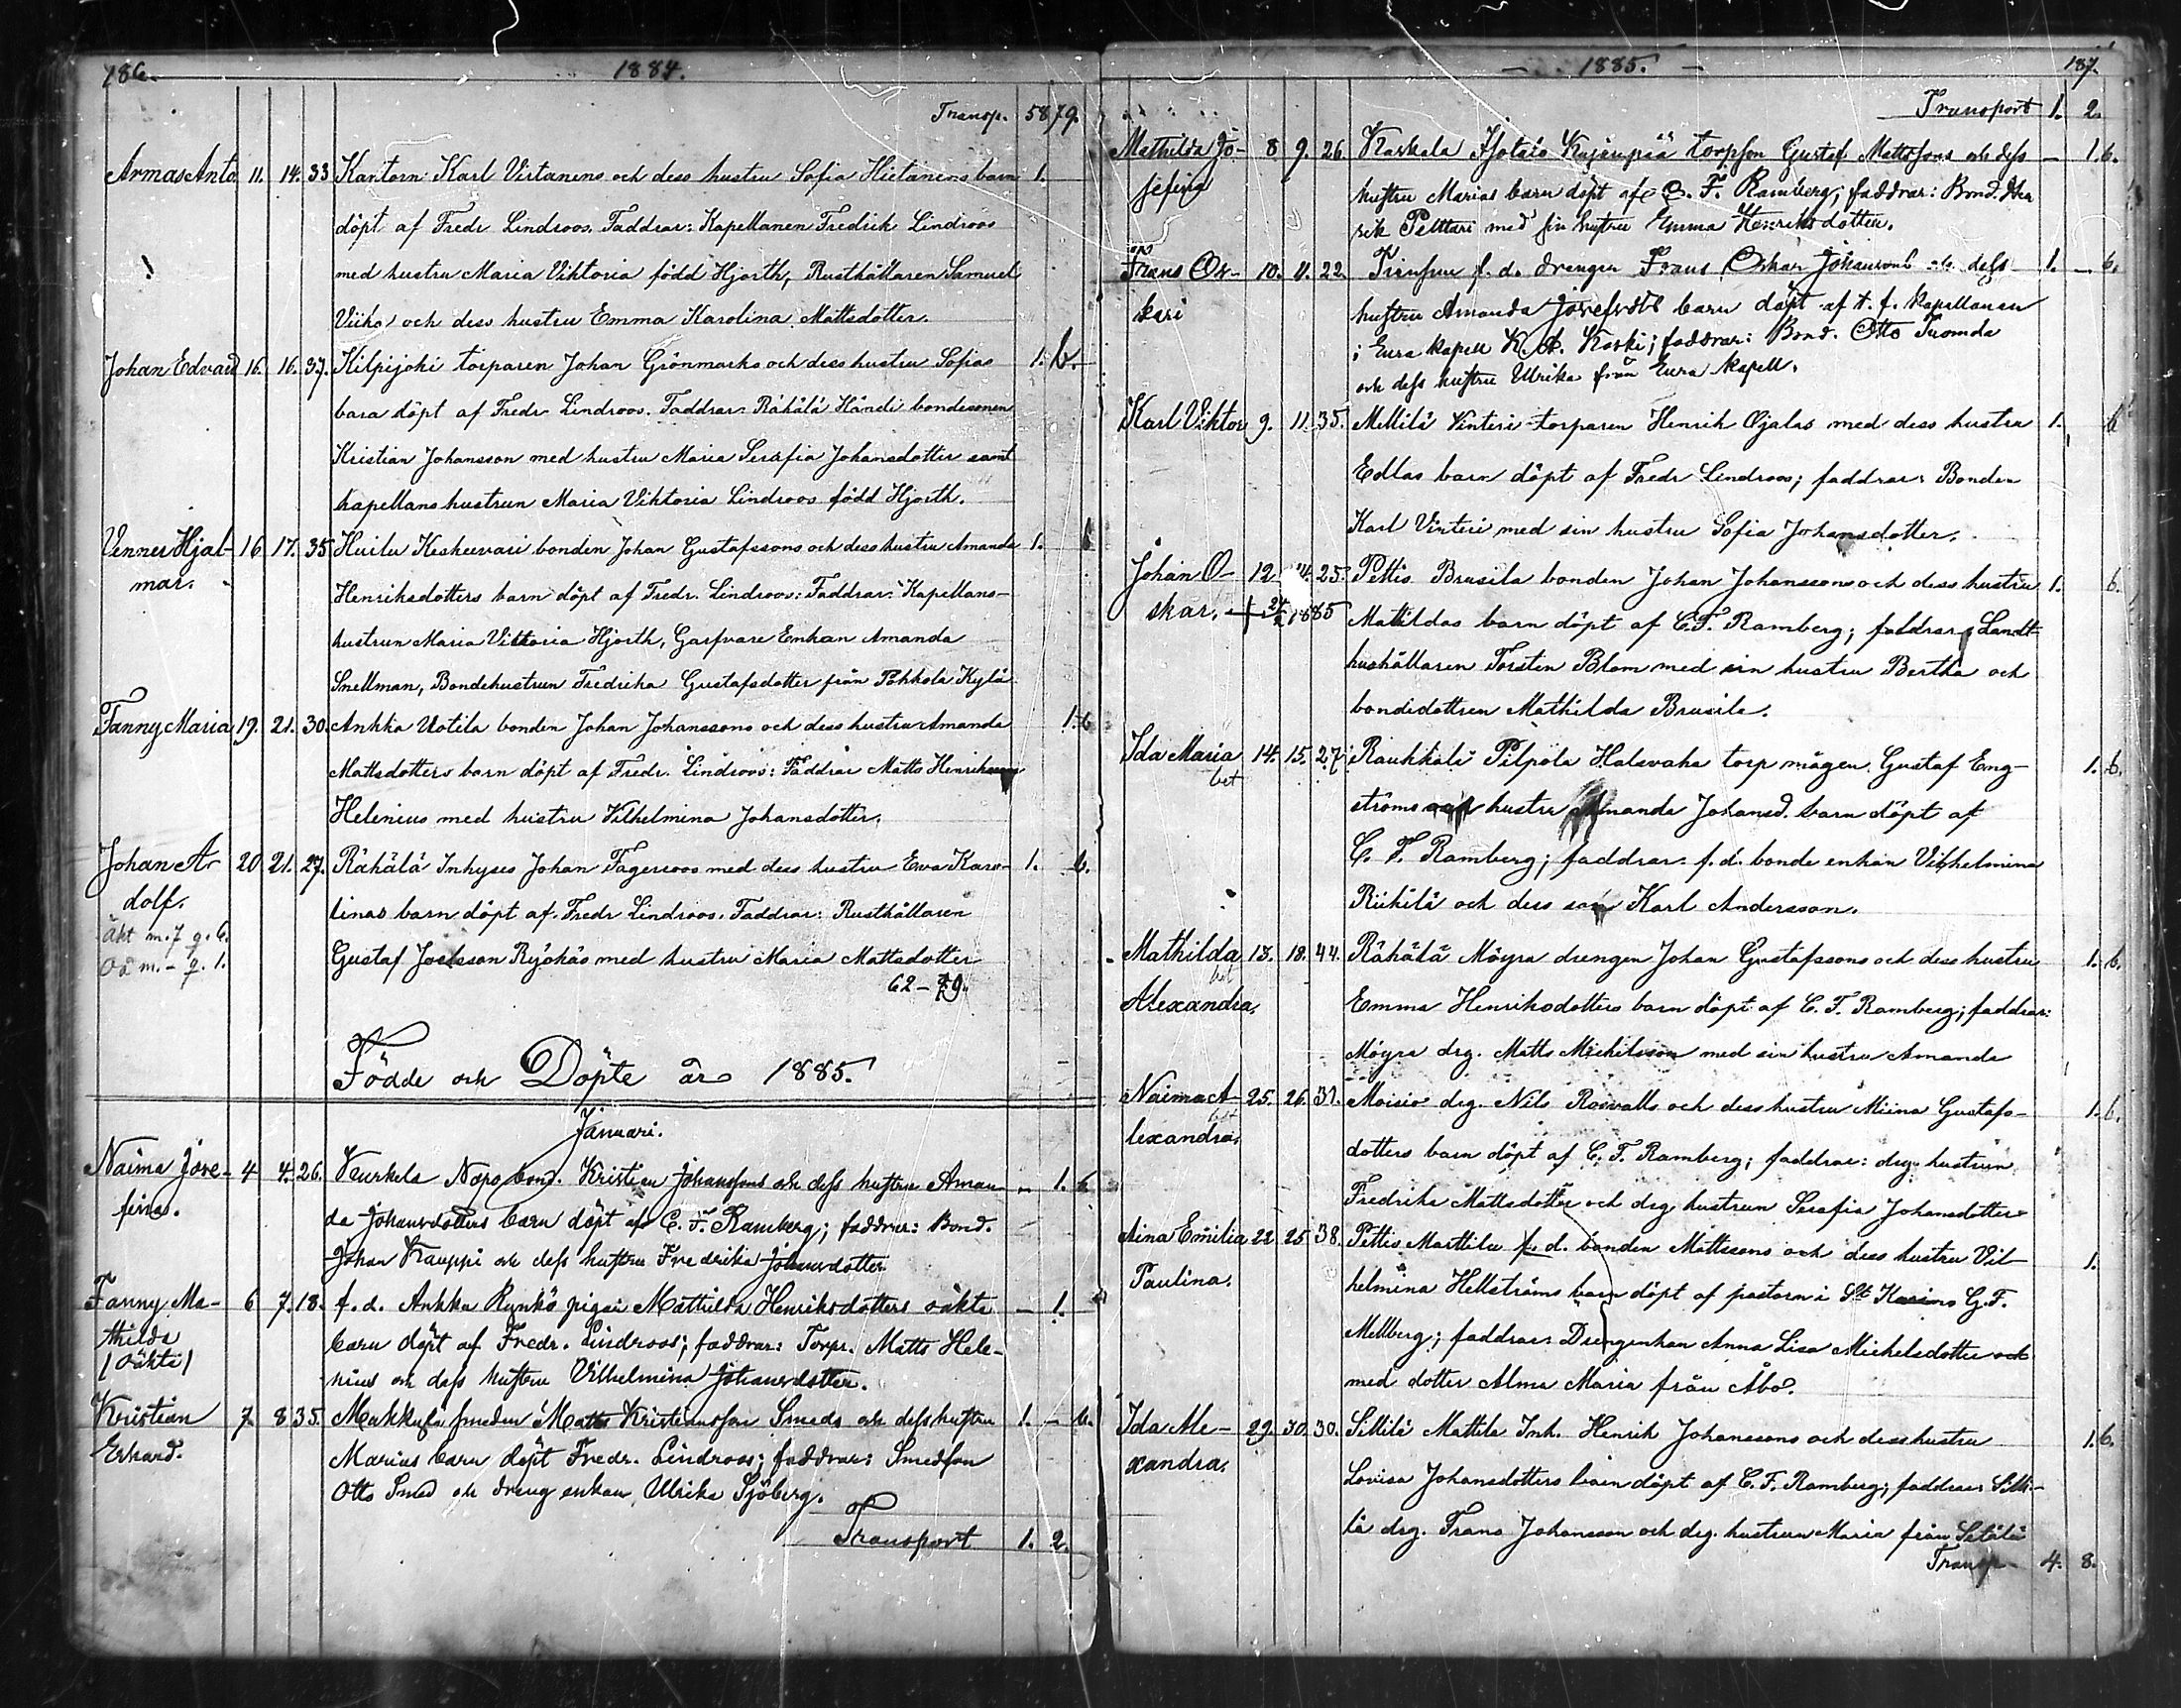 186. 1884.
Transp. 58 79.
Armas Anto 11. 14. 33 Kantorn Karl Virtanens och dess hustru Sofia Hietanens barn 1.
döpt af Fredr Lindroos. Faddrar: Kapellanen Fredrik Lindroos
med hustru Maria Viktoria född Hjorth, Rusthållaren Samuel
och dess hustru Emma Karolina Mattsdotter.
Johan Edvard 16. 16. 37. Kilpijoki torparen Johan Grönmarks och dess hustru Sofias 1. b.
barn döpt af Fredr Lindroos. Faddrar: Rähälä Händi bondesonen
Kristian Johansson med hustru Maria Serafia Johansdotter samt
kapellans hustrun Maria Viktoria Lindroos född Hjorth.
Venner Hjal- 16. 17. 35 bonden Johan Gustafssons och dess hustru Amanda 1. b
mar. Henriksdotters barn döpt af Fredr. Lindroos: Faddrar: Kapellans-
hustrun Maria Viktoria Hjorth, Garfvare Enkan Amanda
Snellman, Bondehustrun Fredrika Gustafsdotter från Pohkola Kylä
Fanny Maria 19. 21. 30. Ankka Uotila bonden Johan Johanssons och dess hustru Amanda 1. b
Mattsdotters barn döpt af Fredr. Lindroos: Faddrar Matts Henriksson
Helenius med hustru Vilhelmina Johansdotter.
Johan A- 20 21. 27. Rähälä Inhyses Johan Fagerroos med dess hustru Eva Karo- 1. b.
dolf. linas barn döpt af Fredr Lindroos. Faddrar: Rusthållaren
äkt m. 7 q. 6. Gustaf Joelsson Ryöhäs med hustru Maria Mattsdotter
oä m. - q. 1.
62 - 79.
Födde och Döpte år 1885.
Januari.
Naima Jose- 4 4. 26. Kurkela Nopo bond. Kristian Johanssons och dess hustru Aman- - 1. b
fina. da Johansdotters barn döpt af C. F. Ramberg; faddrar: Bond.
Johan Kauppi och dess hustru Fredrika Johansdotter
Fanny Ma- 6 7. 18. f. d. Ankka Rynkö pigan Mathilda Henriksdotters oäkta - 1.
thilda barn döpt af Fredr. Lindroos; faddrar: Torpr. Matts Hele-
(oäkta) nius och dess hustru Vilhelmina Johansdotter.
Kristian 7. 8 35. smeden Matts Kristiansson Smeds och dess hustru 1. - b.
Erhard. Marias barn döpt Fredr. Lindroos; faddrar: Smedson
Otto Smed och dreng enkan Ulrika Sjöberg.
Transport 1. 2.
1885. 187.
Transport 1. 2.
Mathilda Jo- 8 9. 26 Kaskala Isotalo torpson Gustaf Mattssons och dess - 1. b.
sefina hustru Marias barn döpt af C. F. Ramberg; faddrar: Bond. Hen
rik Pelttari med sin hustru Emma Henriksdotter.
Frans Os- 10. 11. 22. f. d. drengen Frans Oskar Johanssons och dess 1. - b.
kari hustru Amanda Josefsdtrs barn döpt af t. f. kapellanen
i Eura kapell K. A. Koski; faddrar: Bond. Otto Tuomola
och dess hustru Ulrika från Eura kapell.
Karl Viktor 9. 11. 35. Mellilä Vinteri torparen Henrik Ojalas med dess hustru 1. b
Edlas barn döpt af Fredr Lindroos; faddrar: Bonden
Karl Vinteri med sin hustru Sofia Johansdotter.
Johan O- 12 14. 25. Pettis Brusila bonden Johan Johanssons och dess hustru 1. b.
skar. + 1885 Mathildas barn döpt af C. F. Ramberg; faddrar: Landt
hushållaren Torsten Blom med sin hustru Bertha och
bondedottren Mathilda Brusila.
Ida Maria 14. 15. 27. Raukkali Pilpola Halavaha torp mågen Gustaf Eng- 1. b.
bet ströms och hustru Amanda Johansd. barn döpt af
C. F. Ramberg; faddrar: f. d. bonde enkan Vilhelmina
Riihilä och dess son Karl Andersson.
Mathilda 13. 18. 44. Rähälä Möyra drengen Johan Gustafssons och dess hustru 1. b.
bet
Alexandra. Emma Henriksdotters barn döpt af C. F. Ramberg; faddrar:
Möyra drg. Matts Michelsson med sin hustru Amanda
Naima A- 25. 26. 37. Moisio drg. Nils Rosvalls och dess hustru Miina Gustafs- 1. b.
bet
lexandra. dotters barn döpt af C. F. Ramberg; faddrar: drg. hustrun
Fredrika Mattsdotter och drg. hustrun Serafia Johansdotter
Aina Emilia 22 25 38. Pettis Marttila f. d. bonden Mattssons och dess hustru Vil- 1.
Paulina. helmina Hellströms barn döpt af pastorn i St Karins G. F.
Mellberg; faddrar: Drengenkan Anna Lisa Michelsdotter och
med dotter Alma Maria från Åbo.
Ida Ale- 29. 30. 30. Sillilä Mattila Inh. Henrik Johanssons och dess hustru 1. b.
xandra. Lovisa Johansdotters barn döpt af C. F. Ramberg; faddrar: Silli-
lä drg. Frans Johansson och drg. hustrun Maria från Setälä
Transp. 4. 8.